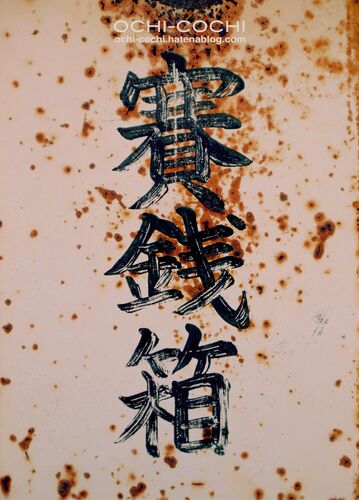 OCHI-COCHI
ochi-cochi.hatenablog.com
賽銭箱